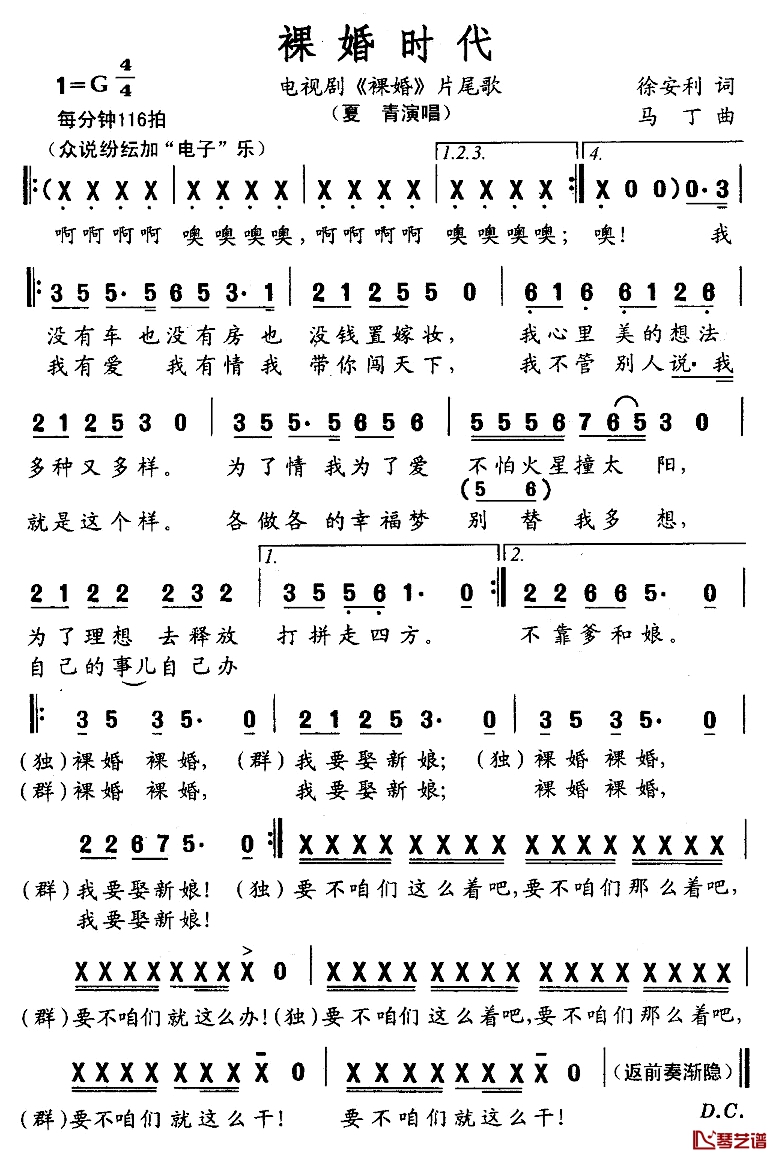 裸婚时代
1=G 4/4
电视剧《裸婚》片尾歌
徐安利 词
每分钟116拍
（夏 青演唱）
马 丁 曲
（众说纷纭加“电子”乐）
1.2.3.
4.
(X X X X | X X X X | X X X X | X X X X :| X 0 0) 0·3
啊啊啊啊 噢噢噢噢，啊啊啊啊 噢噢噢噢；噢！ 我
3 5 5· 5 6 5 3· 1 | 2 1 2 5 5 0 | 6 1 6 6 1 2 6
没有车 也没有房 也 没钱置嫁妆， 我心里 美的想法
我有爱 我有情我 带你闯天下， 我不管 别人说·我
2 1 2 5 3 0 | 3 5 5· 5 6 5 6 | 5 5 5 6 7 6 5 3 0
多种又多样。 为了情 我为了爱 不怕火星撞太 阳，
(5 6)
就是这个样。 各做各 的幸福梦 别 替 我多 想，
1.
2.
2 1 2 2 2 3 2 | 3 5 5 6 1· 0 :| 2 2 6 6 5· 0
为了理想 去释放 打拼走四方。 不靠爹和娘。
自己的事儿自己办
3 5 3 5· 0 | 2 1 2 5 3· 0 | 3 5 3 5· 0
（独）裸婚 裸婚，（群）我要娶新娘；（独）裸婚 裸婚，
（群）裸婚 裸婚， 我要娶新娘； 裸婚 裸婚，
2 2 6 7 5· 0 :| X X X X X X X X X X X X X X X X
（群）我要娶新娘！（独）要不咱们这么着吧，要不咱们那么着吧，
我要娶新娘！
X X X X X X X X 0 | X X X X X X X X X X X X X X X X
（群）要不咱们就这么办！（独）要不咱们这么着吧，要不咱们那么着吧，
X X X X X X X X 0 | X X X X X X X X 0 （返前奏渐隐）
（群）要不咱们就这么干！ 要不咱们就这么干！
D.C.
琴艺谱